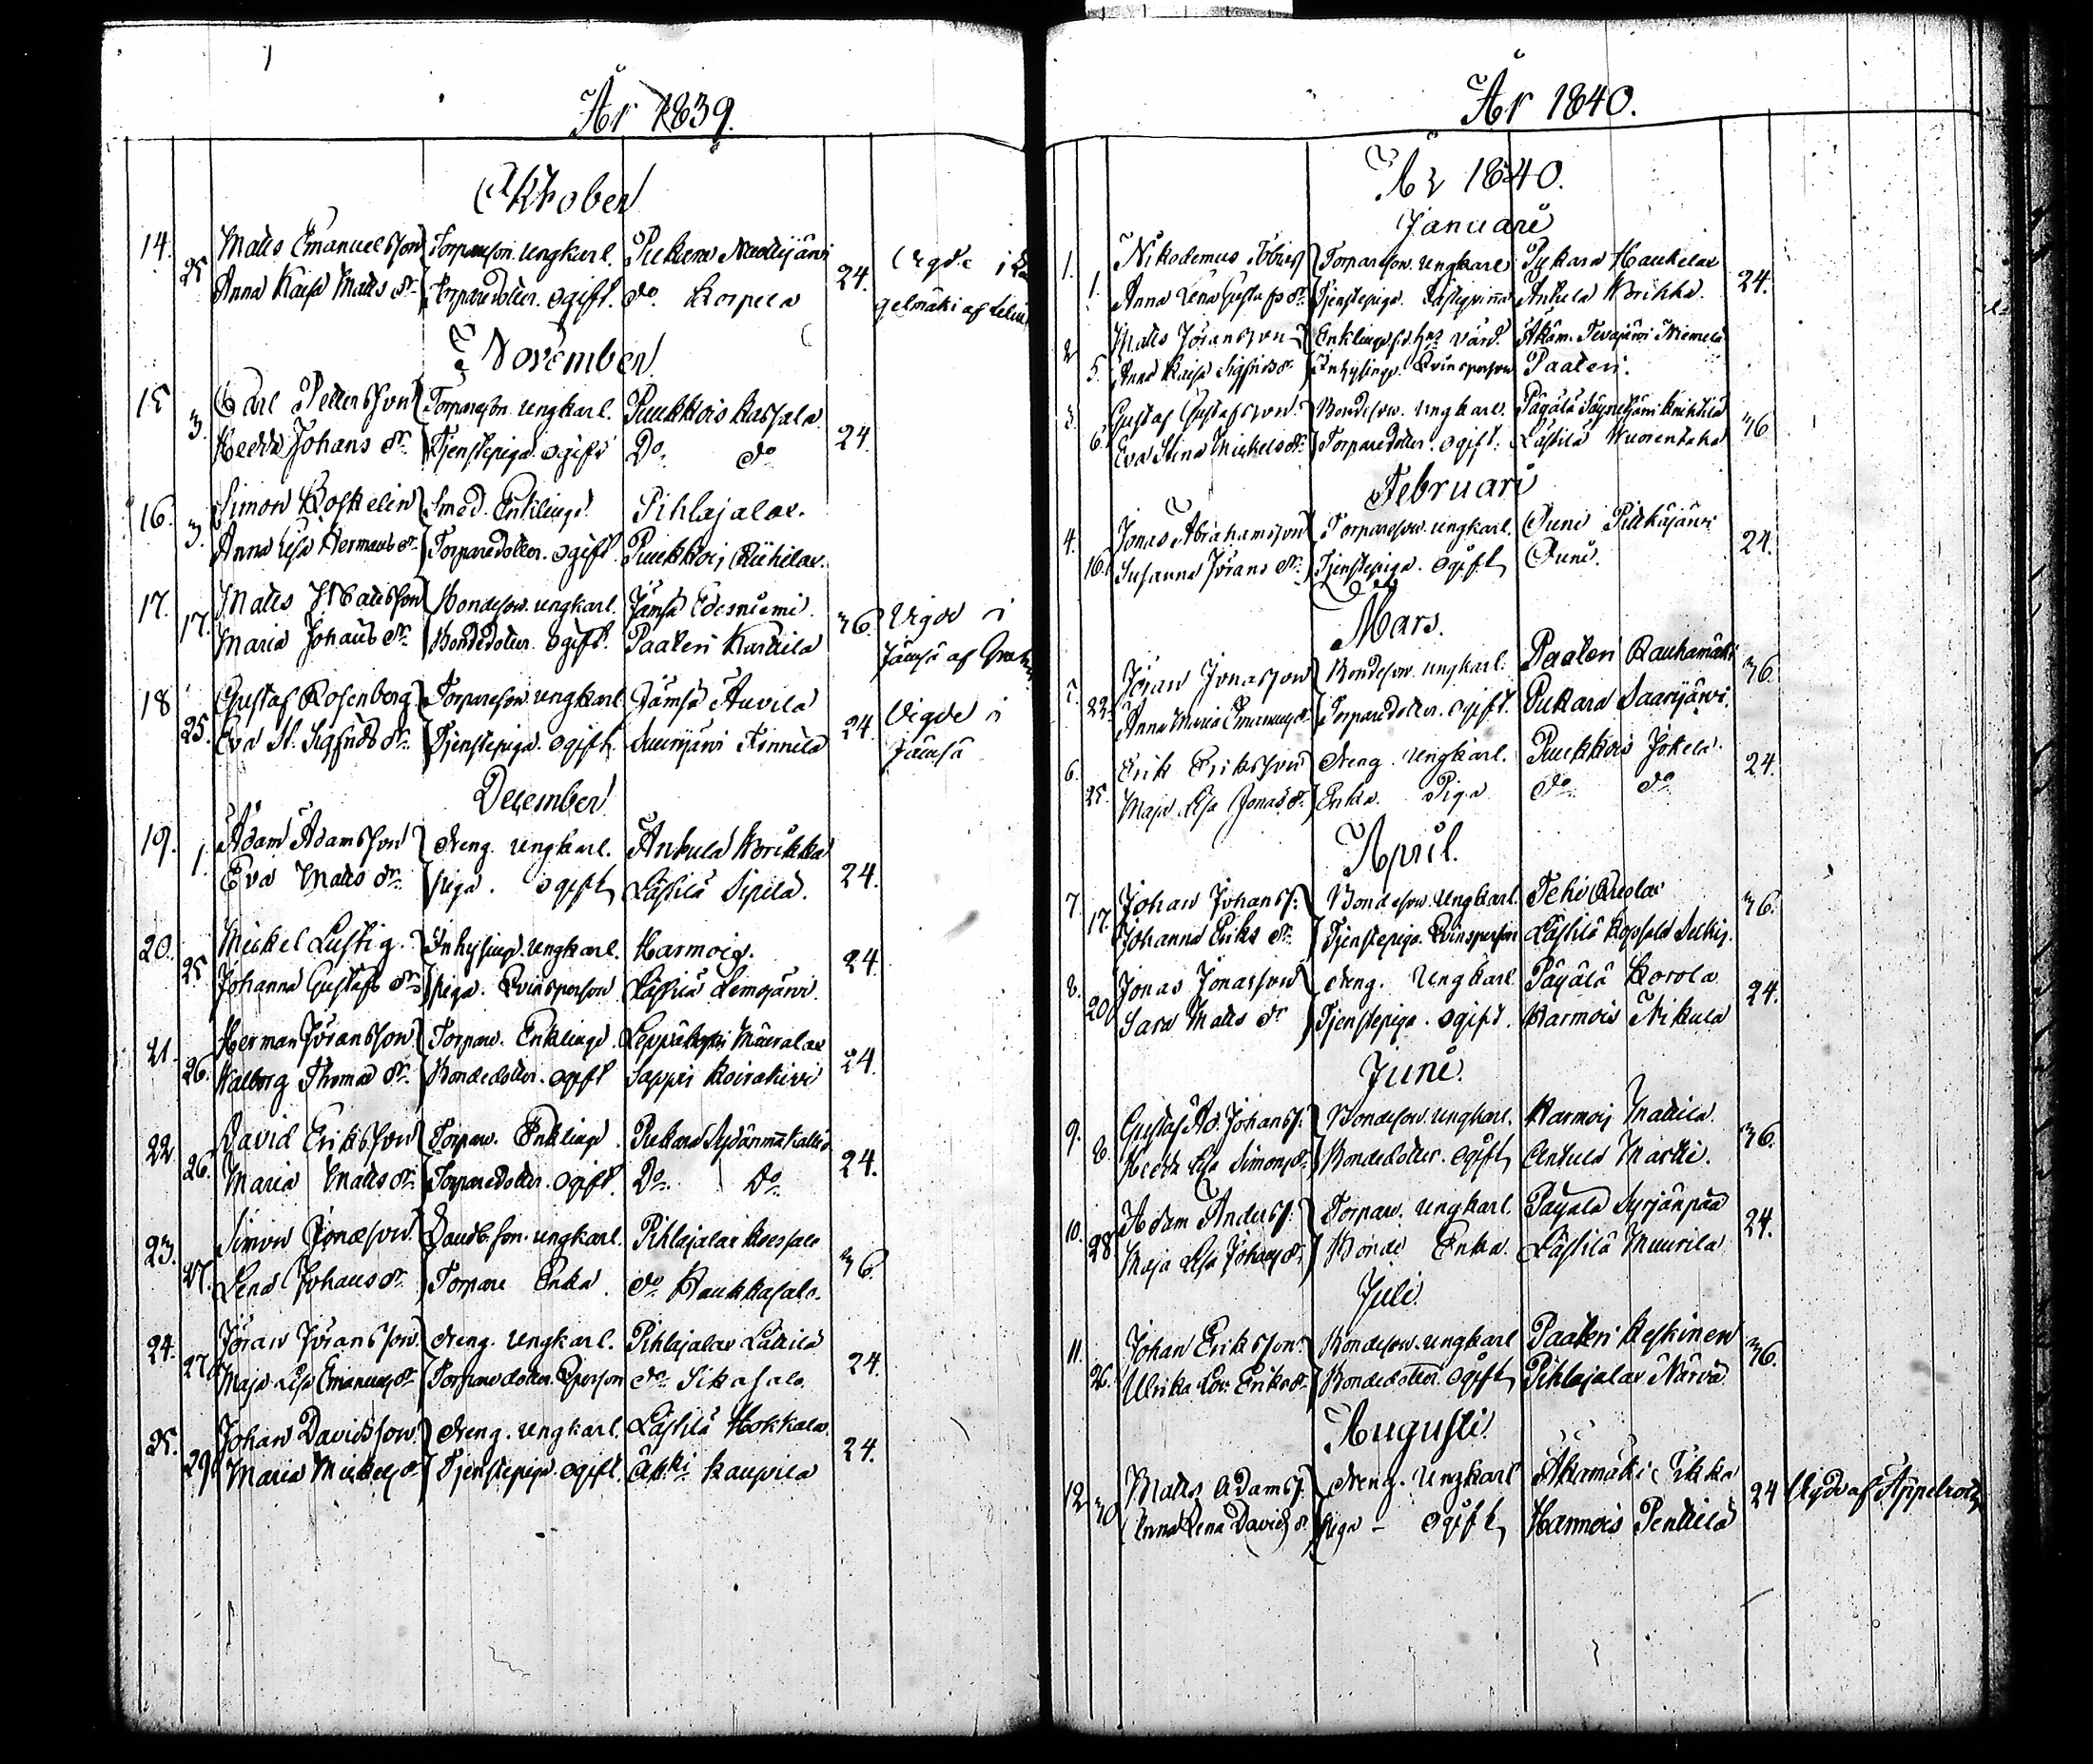 År 1839.
Oktober
14. 25 Matts Emanuelsson Torpareson. ungkarl. Pukara
Anna Kaisa Matts dr Torparedotter. ogift. do Korpela 24.
Vigde i
gelmäki af
November
15 3. Carl Pettersson Torpareson ungkarl. Puukkois Kassala
Hedda Johans dr Tjenstepiga ogift Do do 24.
16. 3. Simon Koskelin Smed. Enkling Pihlajalax.
Anna Lisa Hermans dr Torparedotter. ogift. Puukkois
17. 17. Matts Mattsson Bondeson. ungkarl. Jämsä Edesniemi.
Maria Johans dr Bondedotter. ogift. Paateri Karttila 36.
Vigde i
Jämsä af
18 25. Gustaf Rosenberg Torpareson. ungkarl Jämsä Auvila
Eva St. Sigfrids dr Tjenstepiga. ogift. 24.
Vigde i
Jämsä
December
19. 1. Adam Adamsson dreng. ungkarl. Ankula Worikka
Eva Matts dr piga. ogift Lästilä Sipilä. 24.
20. 25 Mickel Lustig. Inhysing. ungkarl. Harmois.
Johanna Gustafs dr piga. Qvinsperson Lästilä 24.
21. 26. Herman Jöransson Torpare. Enkling.
Walborg Thomas dr Bondedotter. ogift Sappi Koirakivi 24.
22. 26. David Eriksson Torpare. Enkling. Pukara
Maria Matts dr Torparedotter. ogift. Do Do 24.
23. 27. Simon Jonasson. son. ungkarl. Pihlajalax
Lena Johans dr Torpare Enka. do Haukkasalo. 36.
24. 27. Jöran Jöransson. dreng. ungkarl. Pihlajalax Lättilä
Maja Lisa Emanuels dr Torparedotter. do Sikasalo. 24.
25. 29. Johan Davidsson. dreng. ungkarl. Lästilä Hokkala.
Maria Mickels dr Tjenstepiga. ogift. Kaupila 24.
År 1840.
År 1840.
Januari
1. 1. Nikodemus Torpareson. ungkarl Pukara Haukela
Anna Lena Gustafs dr Tjenstepiga. Ankula Worikka. 24.
2 5. Matts Jöransson Enkling Niemelä
Anna Kaisa Sigfrids dr Inhysing. Qvinsperson Paateri.
3. 6. Gustaf Gustafsson. Bondeson. ungkarl. Pägälä
Eva Stina Mickels dr Torparedotter. ogift. Lästilä Wuorentaka 36
Februari
4. 16. Jonas Abrahamsson Torpareson. ungkarl. Auni Pitkäjärvi
Susanna Jörans dr Tjenstepiga. ogift Auni. 24.
Mars.
22. Jöran Jonasson Bondeson. ungkarl. Paateri Rauhamäki
Anna Maria Emanuels dr Torparedotter. ogift. Pukara Saarijärvi. 36.
6. 25. Erik Eriksson dreng. ungkarl. Puukkois Jokela.
Maja Lisa Jonas dr Enka. Piga do do 24.
April.
7. 17. Johan Johanss: Bondeson. ungkarl. Tehi
Johanna Eriks dr Tjenstepiga. Qvinsperson Lästilä 36.
8. 20. Jonas Jonasson dreng. ungkarl. Pägälä Korola
Sara Matts dr Tjenstepiga. ogift. Harmois Nikula 24.
Juni.
9. 8. Gustaf Ad. Johanss: Bondeson. ungkarl. Harmois Mattila.
Hedda Lisa Simons dr Bondedotter. ogift Ankula Martti. 36.
10. 28 Adam Anderss: Torpare. ungkarl. Pägälä Syrjänpää
Maja Lisa Johans dr Bonde Enka. Lästilä Muurila 24.
Juli.
11. 26. Johan Eriksson. Bondeson. ungkarl Paateri Keskinen
Ulrika Eriks dr Bondedotter. ogift Pihlajalax Närvä 36.
Augusti
12 30 Matts Adams: dreng. ungkarl Akamäki Tikka
Anna Lena Davids dr piga - ogift Harmois Penttilä 24 Vigde af